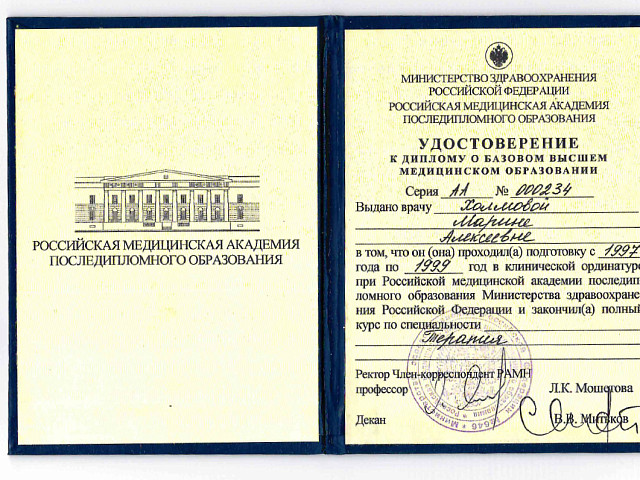 РОССИЙСКАЯ МЕДИЦИНСКАЯ АКАДЕМИЯ
ПОСЛЕДИПЛОМНОГО ОБРАЗОВАНИЯ
МИНИСТЕРСТВО ЗДРАВООХРАНЕНИЯ
РОССИЙСКОЙ ФЕДЕРАЦИИ
РОССИЙСКАЯ МЕДИЦИНСКАЯ АКАДЕМИЯ
ПОСЛЕДИПЛОМНОГО ОБРАЗОВАНИЯ
УДОСТОВЕРЕНИЕ
К ДИПЛОМУ О БАЗОВОМ ВЫСШЕМ
МЕДИЦИНСКОМ ОБРАЗОВАНИИ
Серия АА № 000234
Выдано врачу Холмовой
Марине
Алексеевне
в том, что он (она) проходил(а) подготовку с 1997
года по 1999 год в клинической ординатуре
при Российской медицинской академии последип
ломного образования Министерства здравоохране
ния Российской Федерации и закончил(а) полный
курс по специальности
Терапия
Ректор Член-корреспондент РАМН
профессор Л.К. Мошетова
Декан В.В. Митьков